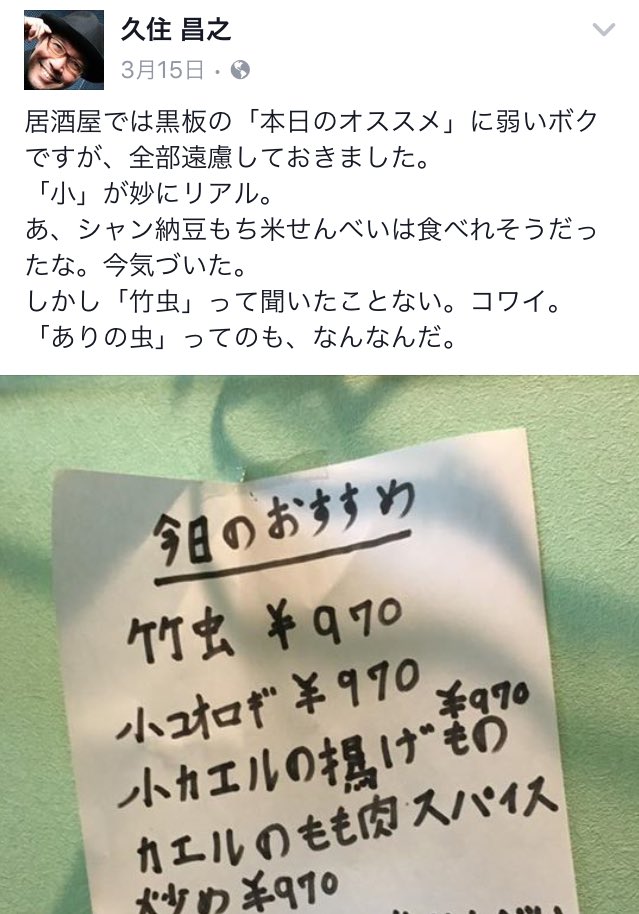 久住 昌之
3月15日
居酒屋では黒板の「本日のオススメ」に弱いボク
ですが、全部遠慮しておきました。
「小」が妙にリアル。
あ、シャン納豆もち米せんべいは食べれそうだっ
たな。今気づいた。
しかし「竹虫」って聞いたことない。コワイ。
「ありの虫」ってのも、なんなんだ。
今日のおすすめ
竹虫 ¥970
小コオロギ ¥970
¥970
小カエルの揚げもの
カエルのもも肉スパイス
炒め ¥970